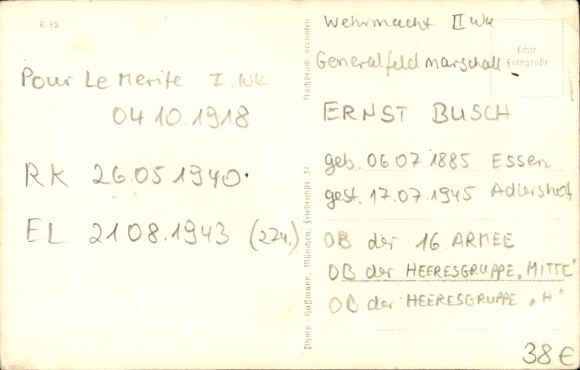 R 95
Pour Le Merite I. WK
04.10.1918
RK 26.05.1940.
EL 21.08.1943 (274.)
Nachdruck verboten
Photo-Hoffmann, München,
Wehrmacht II WK
Generalfeldmarschall
Echte
Fotografie
ERNST BUSCH
geb. 06 07.1885 Essen
gest. 17.07.1945 Adlershof
OB der 16 ARMEE
OB der HEERESGRUPPE „MITTE"
OB der HEERESGRUPPE „H"
38 €